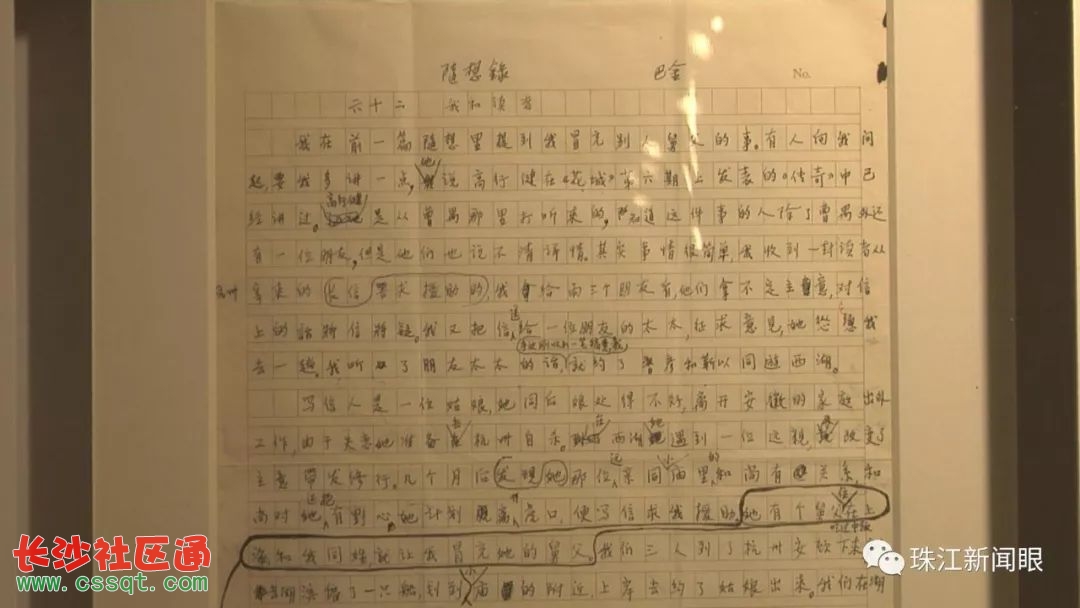 随想録 巴金 No.
六十二 我和读者
我在前一篇随想里提到我冒充别人舅父的事。有人向我问
起,要我多讲一点,他说高行健在《花城》第六期上发表的《传奇》中已
经讲过。高行健是从曹禺那里打听来的,知道这件事的人除了曹禺外还
有一位朋友,但是他们也说不清详情。其实事情很简单,我收到一封读者从
杭州
拿来的长信要求援助的,我给两三个朋友看,他们拿不定主意,对信
上的话将信将疑。我又把信送给一位朋友的太太,征求意见,她怂恿我
去一趟。我听了朋友太太的话,手边刚收到一笔稿费就约了鲁彦和靳以同游西湖。
写信人是一位姑娘,她同后娘处得不好,离开安徽的家庭出外
工作,由于失恋她准备去杭州自杀。在西湖她遇到一位远亲,改变了
主意,带发修行。几个月后发现她那位远亲同小庙里的和尚有关系,和
尚对她还抱有野心,她计划脱离虎口,便写信求我援助,她有个舅父住在上
海和我同姓,就让我冒充她的舅父。我们三人到了杭州安顿下来
湖滨借了一只船,划到小庙的附近,上岸去约了姑娘出来。我们在湖
长沙社区通
www.cssqt.com
珠江新闻眼